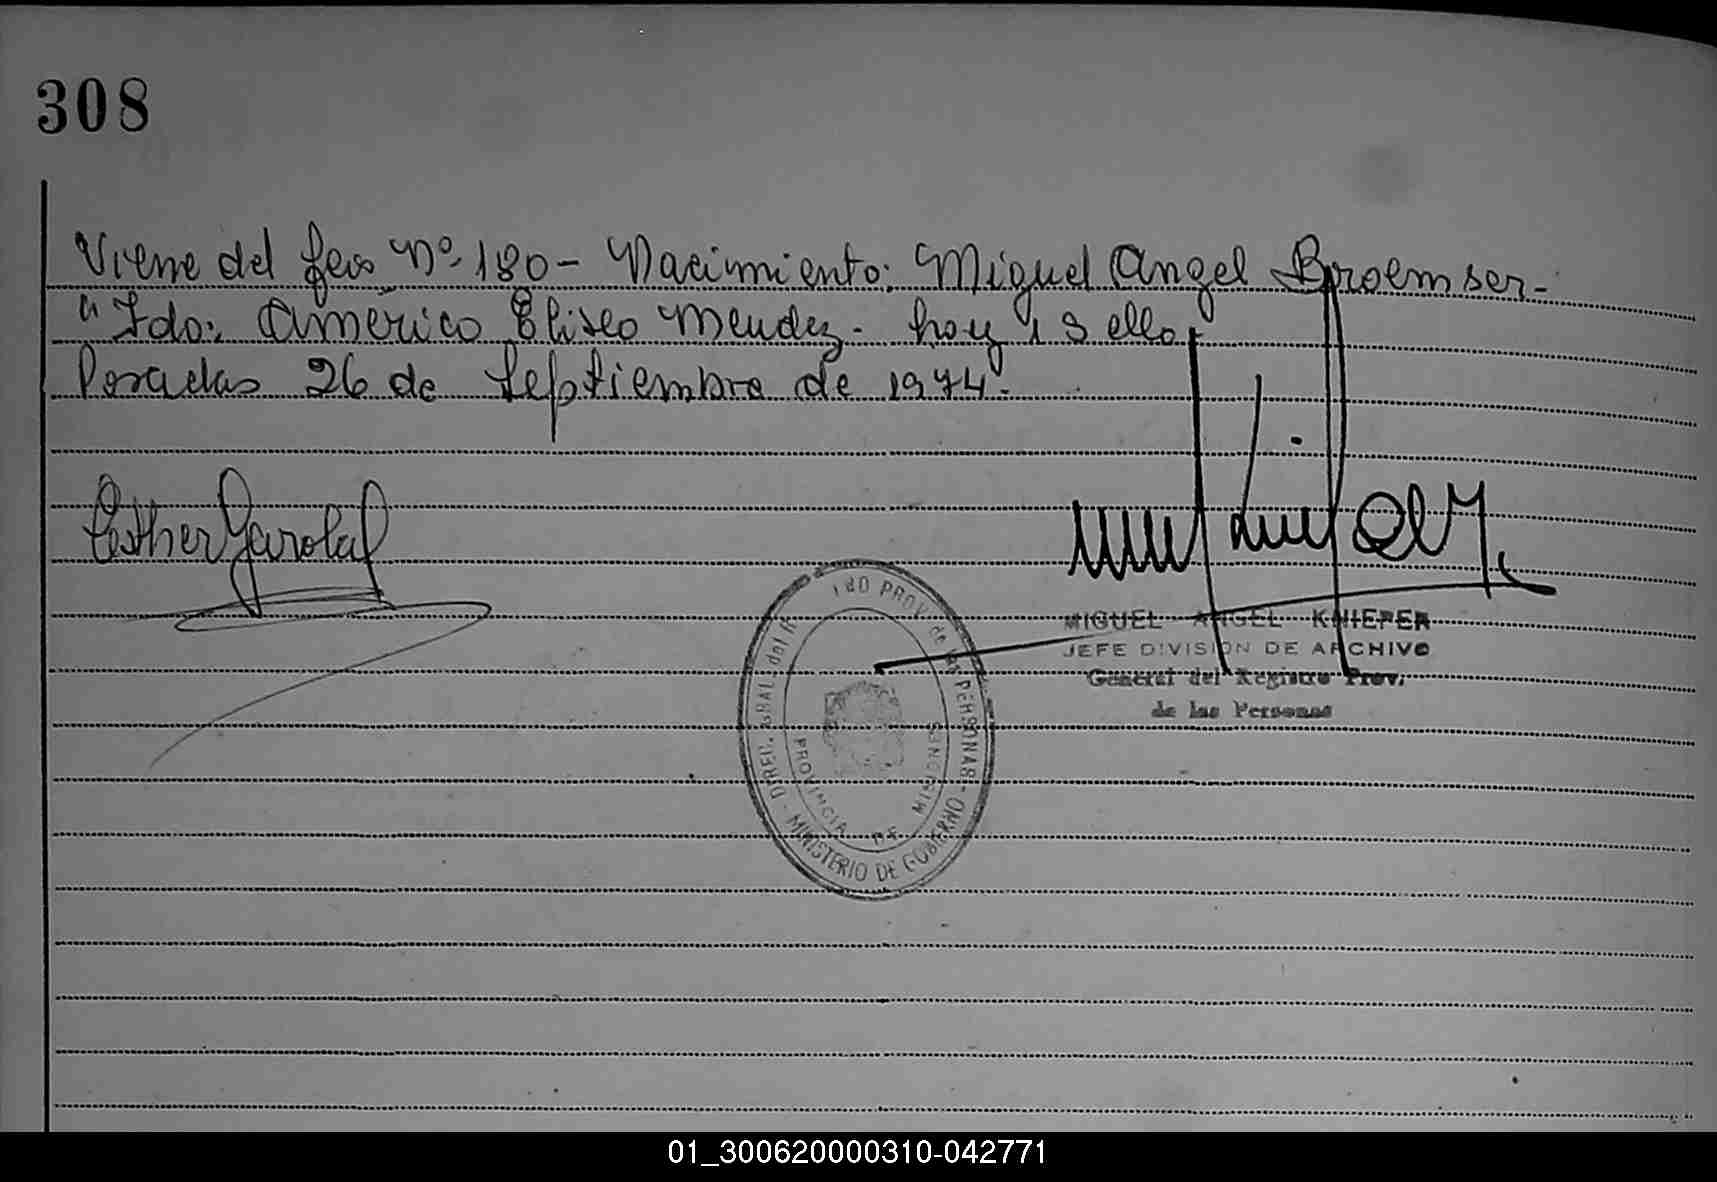 308
Viene del feso Nº 180 - Nacimiento: Miguel Angel Broemser.-
" Fdo: Américo Eliseo Mendez - hay 1 sello
Posadas 26 de Septiembre de 1974.
Esther Garolal
MIGUEL ANGEL KNIEPER
JEFE DIVISION DE ARCHIVO
General del Registro Prov.
de las Personas
DIREC. GRAL. del PROV. de las PERSONAS - MINISTERIO DE GOBIERNO -
PROVINCIA DE MISIONES
01_300620000310-042771